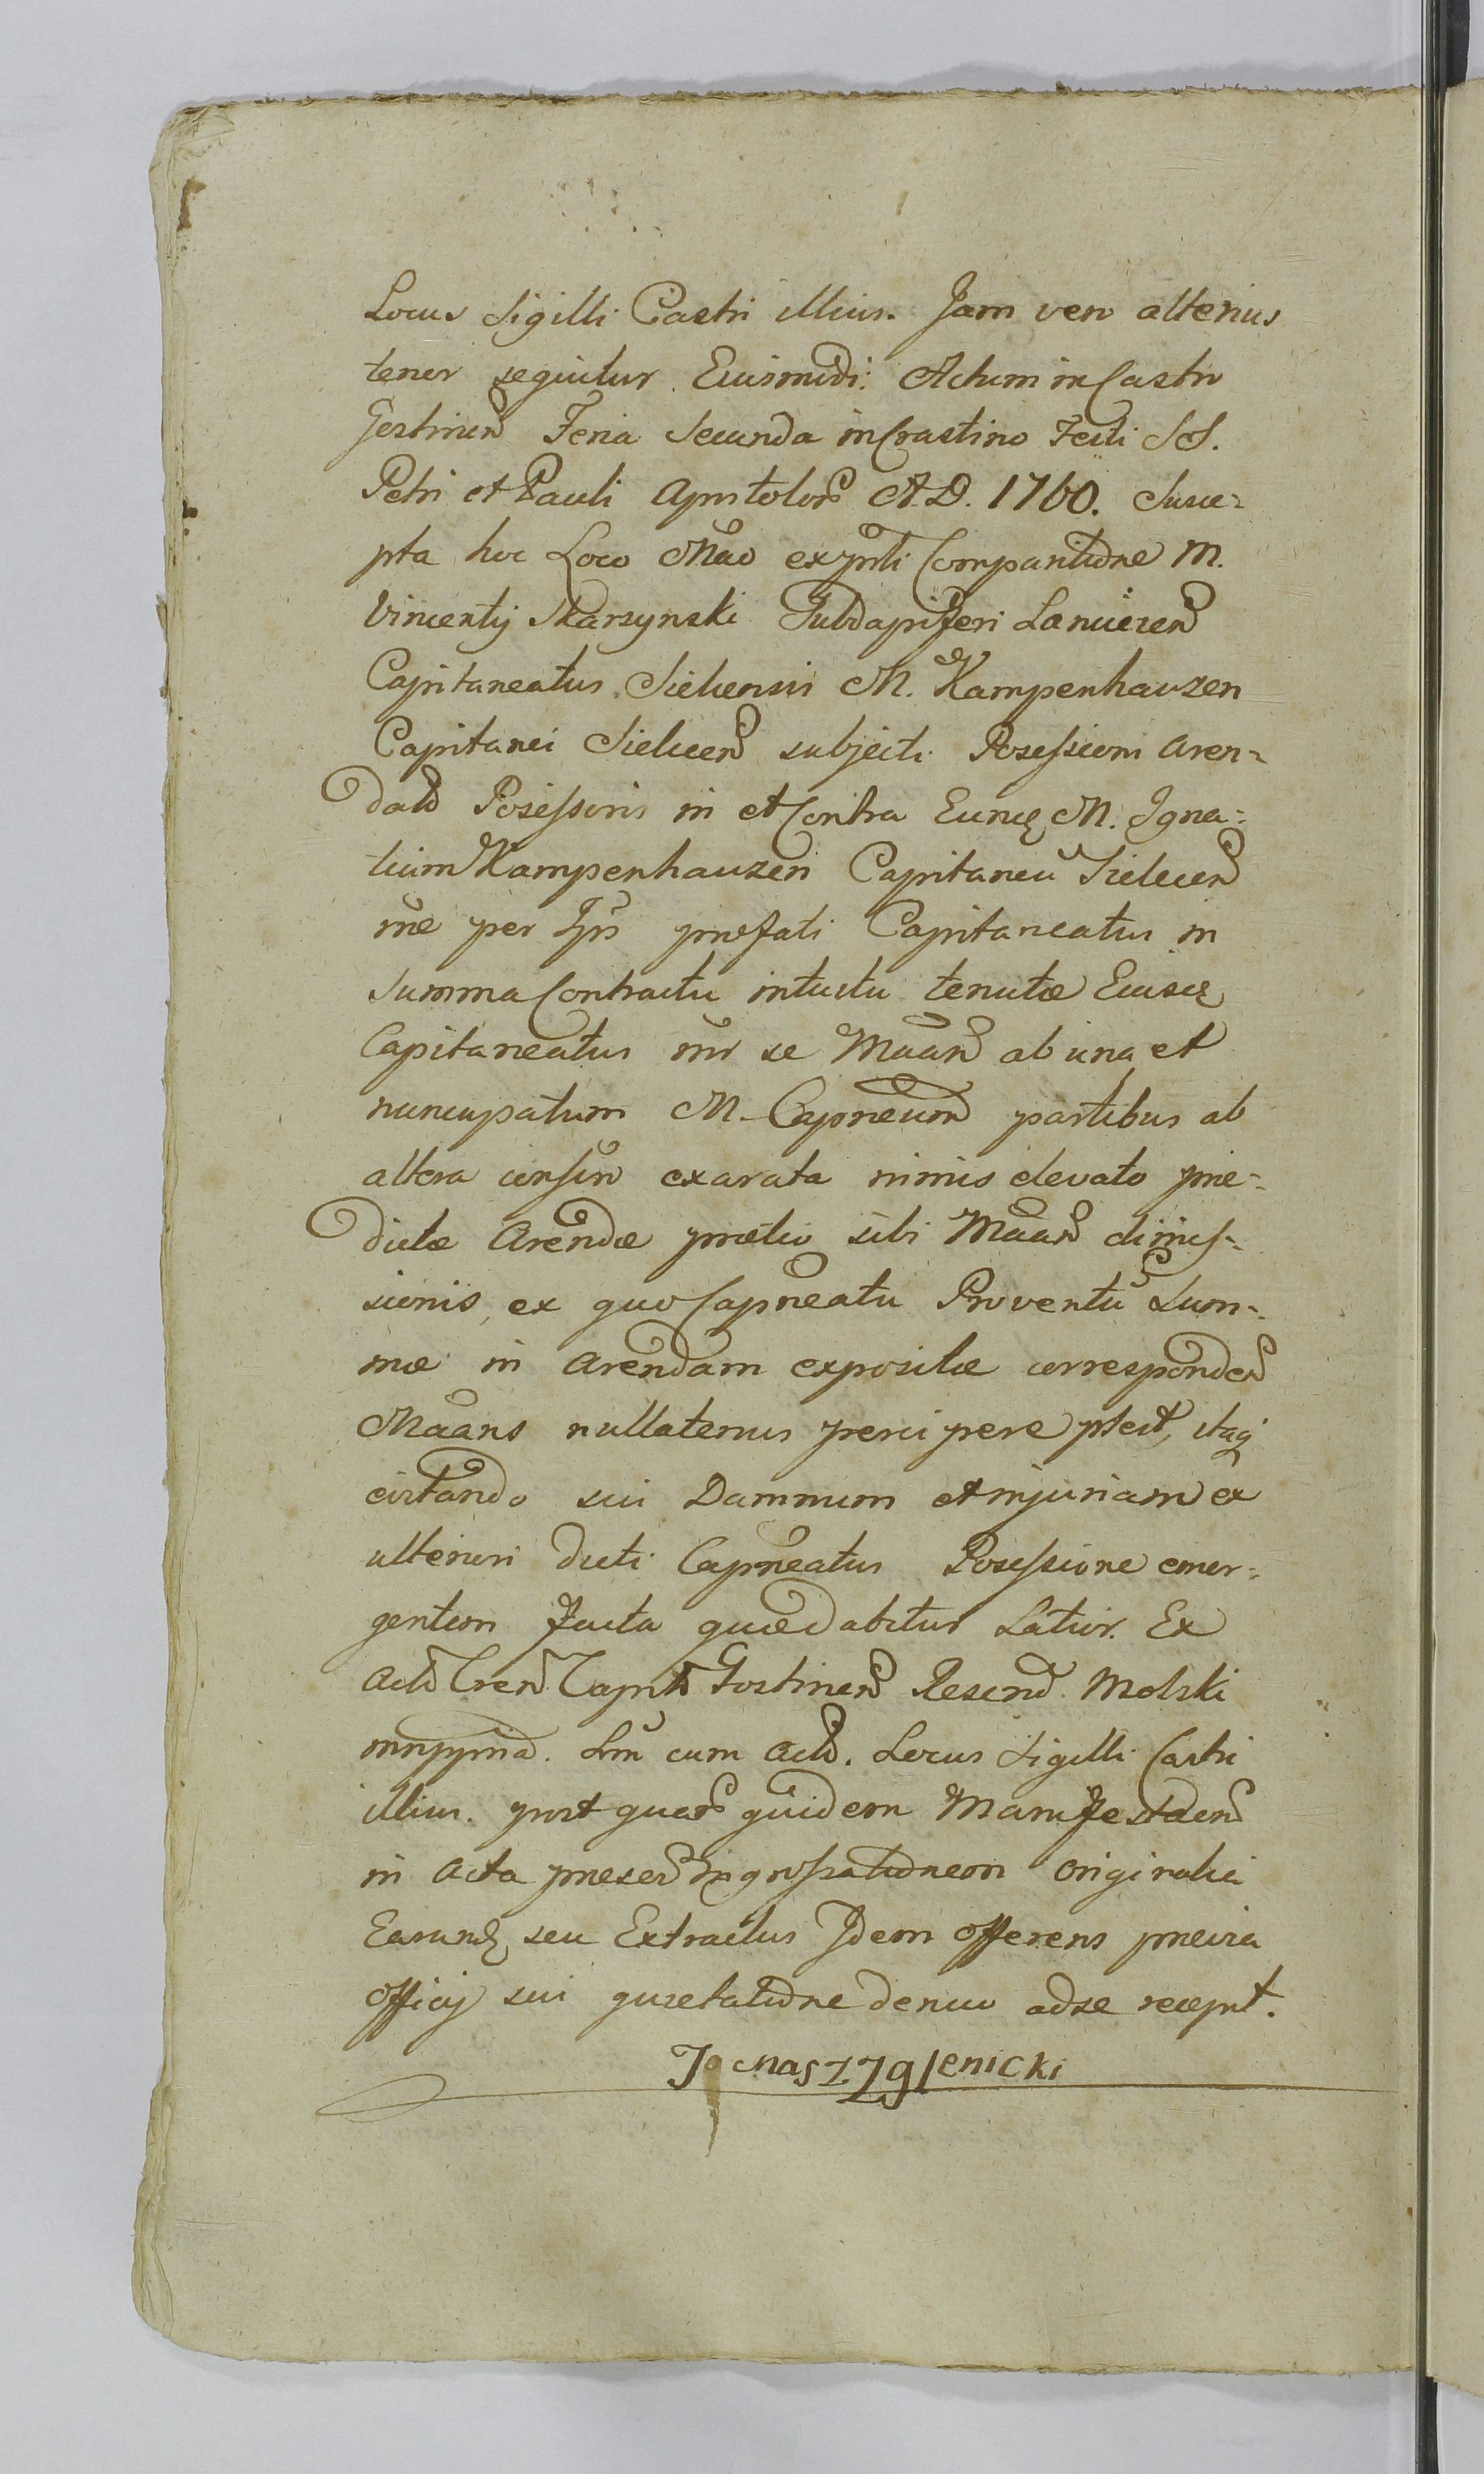 Locus Sigilli Castri illius. Jam vero alterius
tenor sequitur Eiusmodi: Actum in Castro
Gostinen Feria Secunda in Crastino Festi SS.
Petri et Pauli Apostolor A.D. 1760. Susce=
pta hoc Loco Mao ex pnti Comparitione M.
Vincentij Skarzynski Subdapiferi Lancicen
Capitaneatus Sielcensis M. Kampenhauzen
Capitanei Sielcen subjecti Possessioni Aren=
dal Possessoris in et Contra Eund M. Igna=
tium Kampenhauzen Capitaneu Sielcen
me per Ips praefati Capitaneatus in
Summa Contractu intuitu tenutae Eiusd
Capitaneatus inr se Maan ab una et
nuncupatum M. Capneum partibus ab
altera conscrip exarata nimis elevato prae=
dictae Arendae praetio sibi Maan dimis=
sionis, ex quo Capneatu Proventu Sum=
mae in Arendam expositae corresponden
Maans nullatenus percipere ptest, itaq
evitando sui Damnum et injuriam ex
ulteriori dicti Capneatus Possessione emer=
gentem Facta quae dabitur Latior. Ex
Actis Cren Captli Gostinen Rescrip. Molski
mppria. Lm cum Actis. Locus Sigilli Castri
illius. post quar quidem Manifestaon
in Acta praesen Ingrossationem originalia
Earund seu Extractus Idem offerens praevia
officij sui quietatione denuo ad se recepit.
Jgnasz Zglenicki